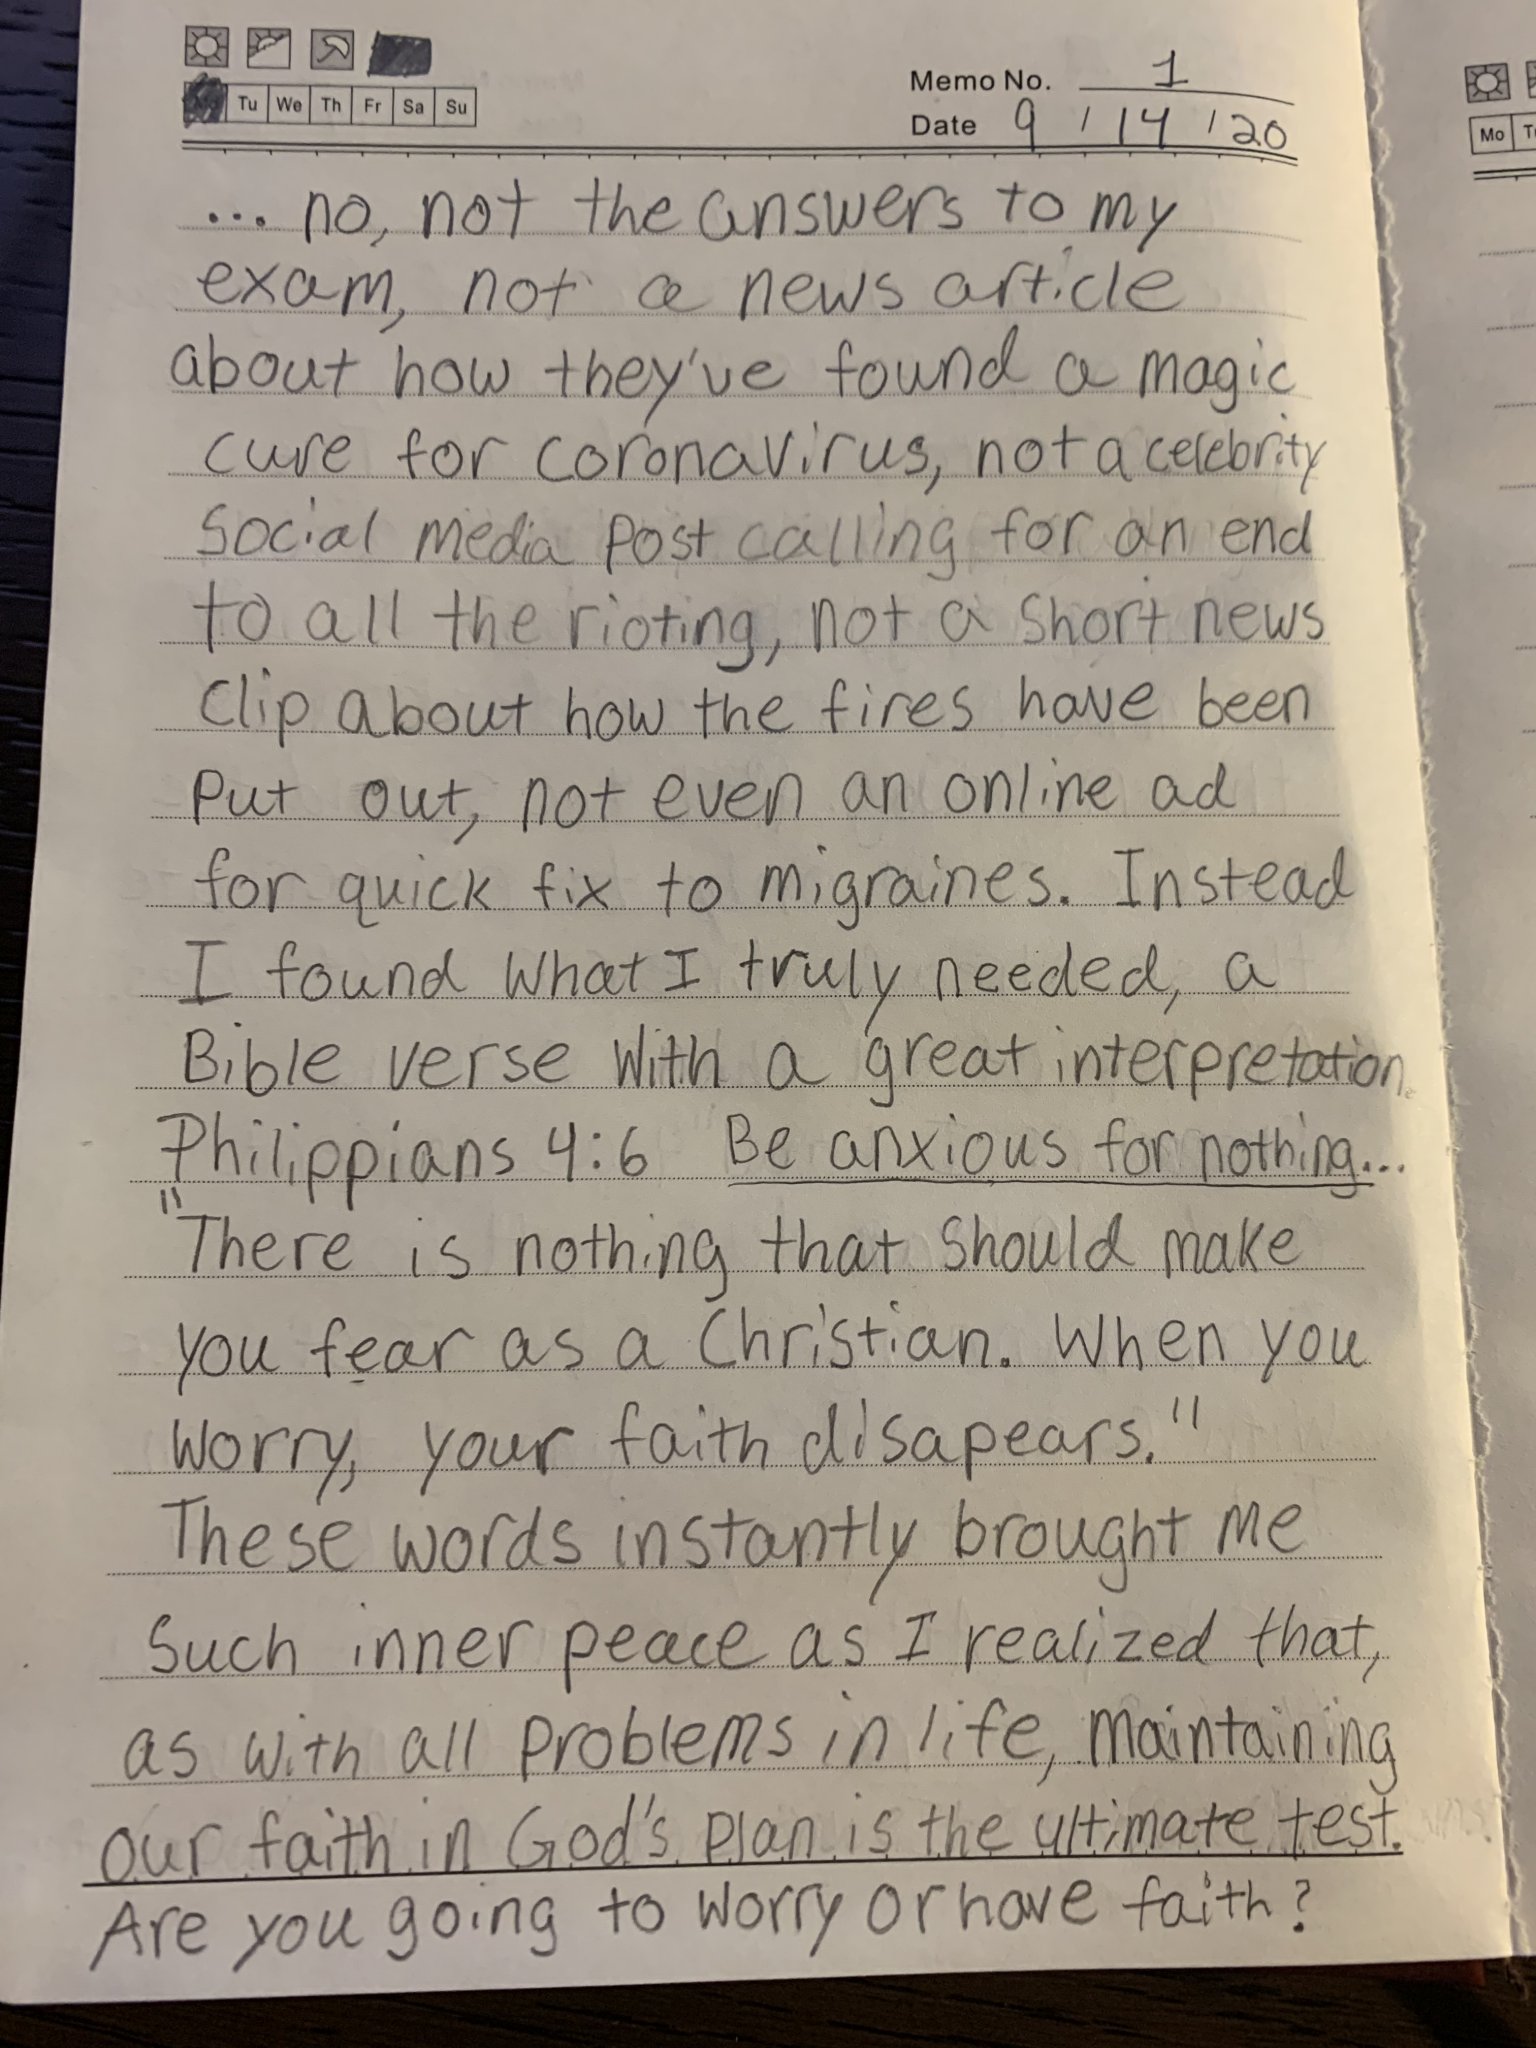 Memo No. 1
Tu We Th Fr Sa Su
Date 9 / 14 / 20
... no, not the answers to my
exam, not a news article
about how they've found a magic
cure for coronavirus, not a celebrity
Social media post calling for an end
to all the rioting, not a short news
clip about how the fires have been
put out, not even an online ad
for quick fix to migraines. Instead
I found what I truly needed, a
Bible verse with a great interpretation.
Philippians 4:6 Be anxious for nothing...
"There is nothing that should make
you fear as a Christian. When you
worry, your faith disapears."
These words instantly brought me
such inner peace as I realized that,
as with all problems in life, maintaining
our faith in God's plan is the ultimate test.
Are you going to worry or have faith?
Mo